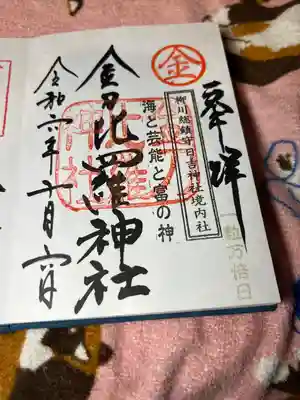 奉拝
金
柳川総鎮守 日吉神社境内社
海と芸能と富の神
一粒万倍日
金刀比羅神社
令和六年十月六日